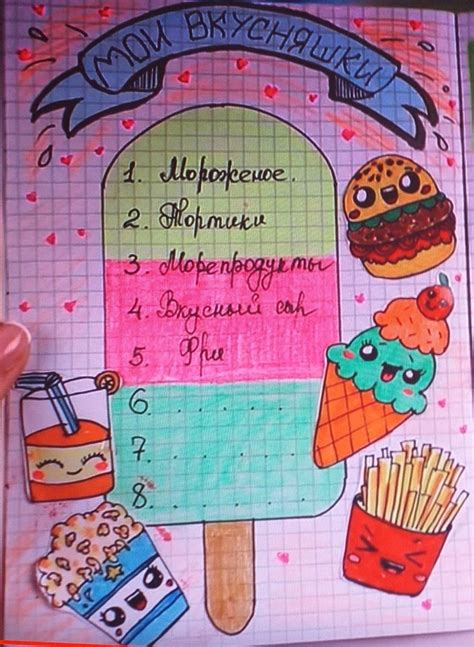 МОИ ВКУСНЯШКИ
1. Мороженое.
2. Тортики
3. Морепродукты
4. Вкусный сыр
5. Фри
6. . . . . . . . .
7. . . . . . . . .
8. . . . . . . . .